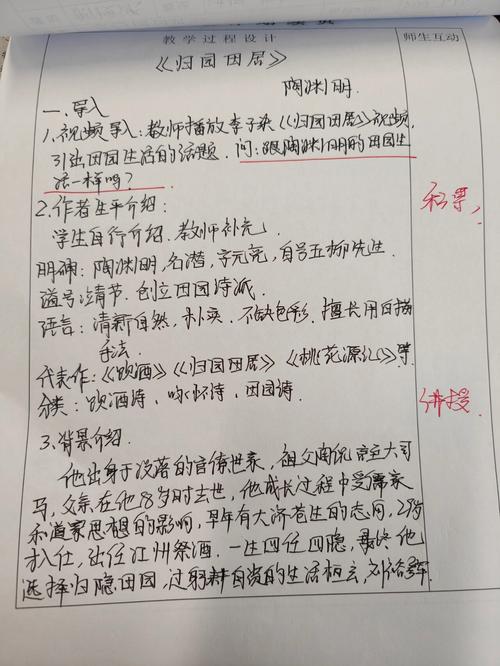 教学过程设计
师生互动
《归园田居》
陶渊明.
一.导入
1.视频导入:教师播放李子柒《归园田居》视频,
引出田园生活的话题.问:跟陶渊明的田园生
活一样吗?
2.作者生平介绍:
学生自行介绍.教师补充.
陶渊明,名潜,字元亮,自号五柳先生.
谥号靖节.创立田园诗派.
语言:清新自然,朴实.不缺色彩.擅长用白描
手法.
代表作:《饮酒》《归园田居》《桃花源记》等
分类:饮酒诗、咏怀诗、田园诗.
讲授.
3.背景介绍.
他出身于没落的官僚世家,祖父陶侃官至大司
马,父亲在他8岁时去世,他成长过程中受儒家
和道家思想的影响,早年有大济苍生的志向,29岁
才入仕,出任江州祭酒.一生四仕四隐,最终他
选择归隐田园,过躬耕自资的生活